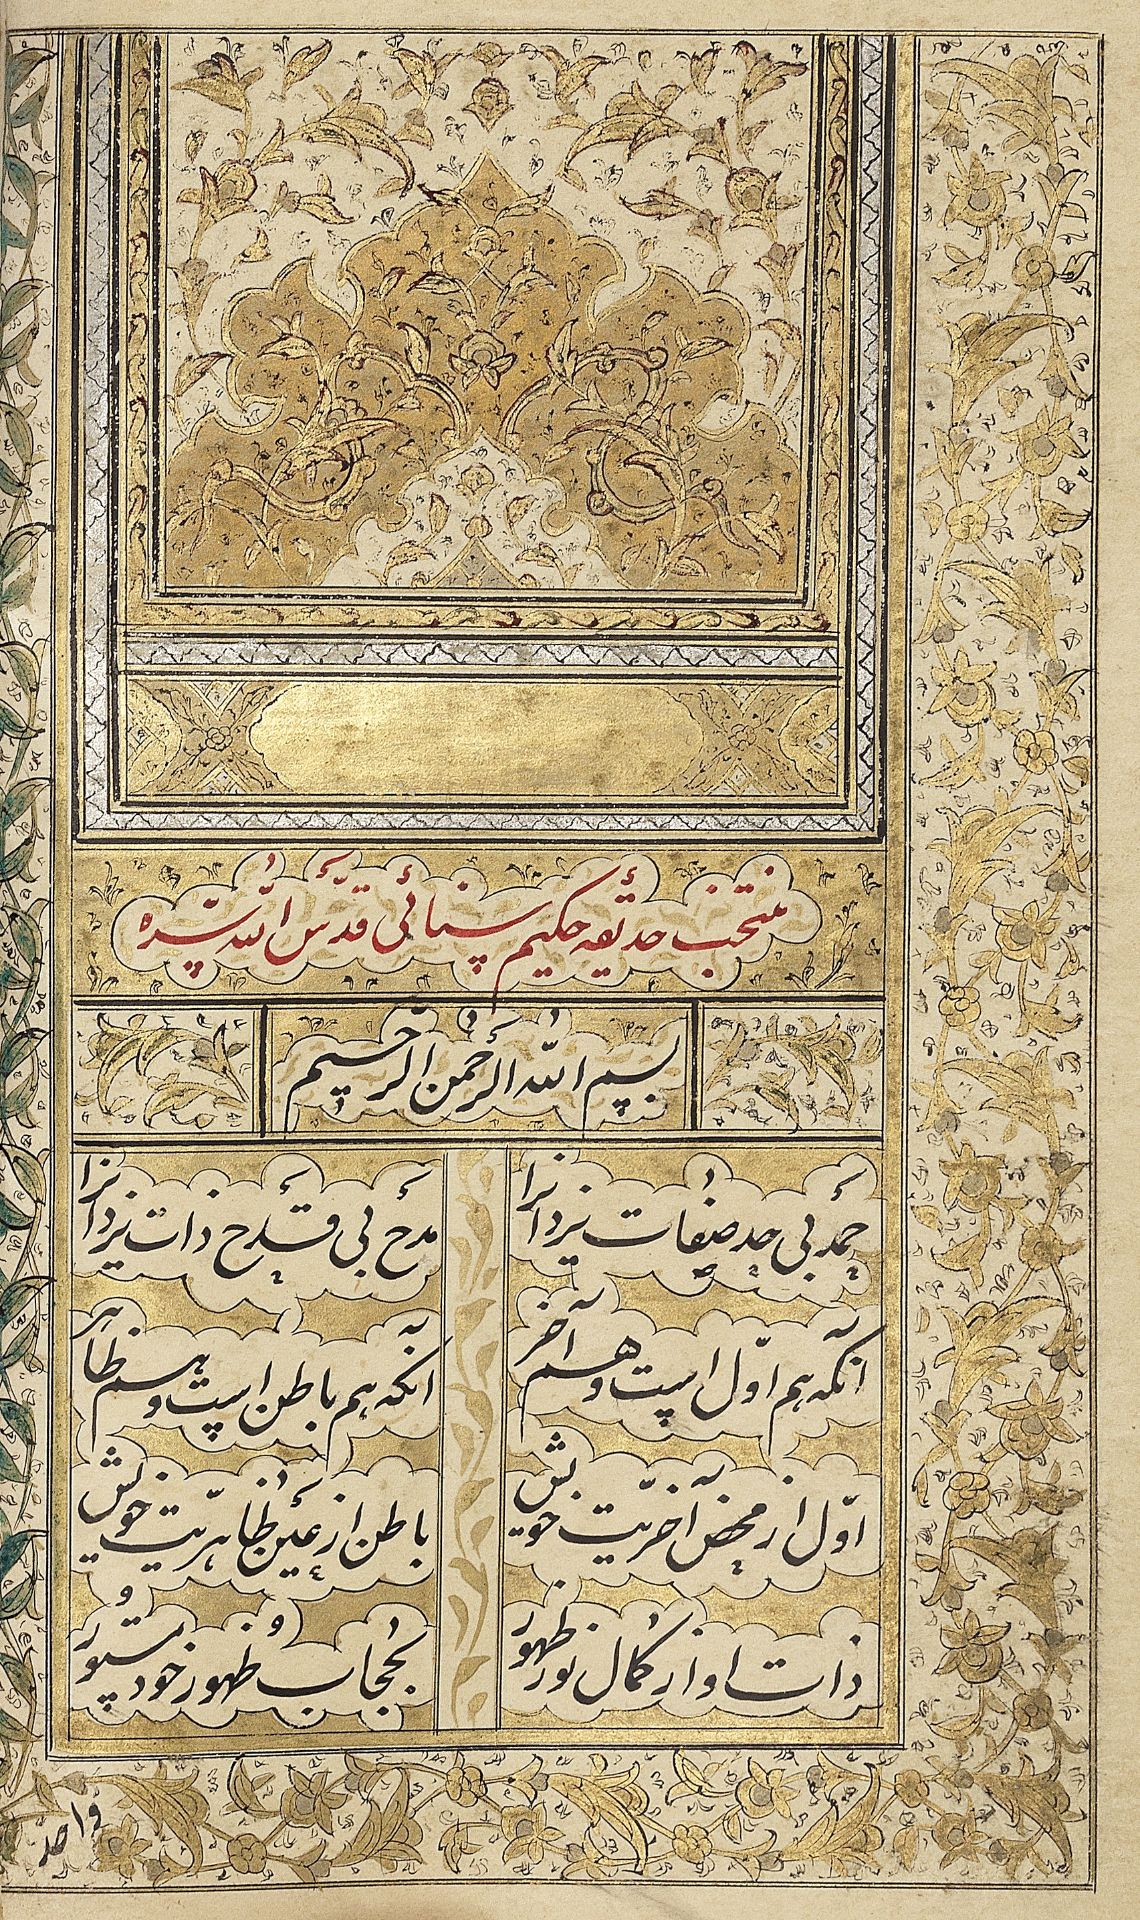 منتخب حدیقه حکیم سنائی قدّس اللّه سره
بسم اللّه الرحمن الرحیم
حمد بی حد صفات یزدانرا
مدح بی قدح ذات یزدانرا
آنکه هم اوّل است و هم آخر
آنکه هم باطن است و هم ظاهر
اوّل از محض آخریّت خویش
باطن از عین ظاهریّت خویش
ذات او از کمال نور ظهور
بحجاب ظهور خود مستور
واحد